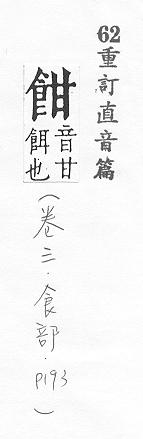 62重訂直音篇
䤗
音甘
餌也
（卷三．食部．P193）